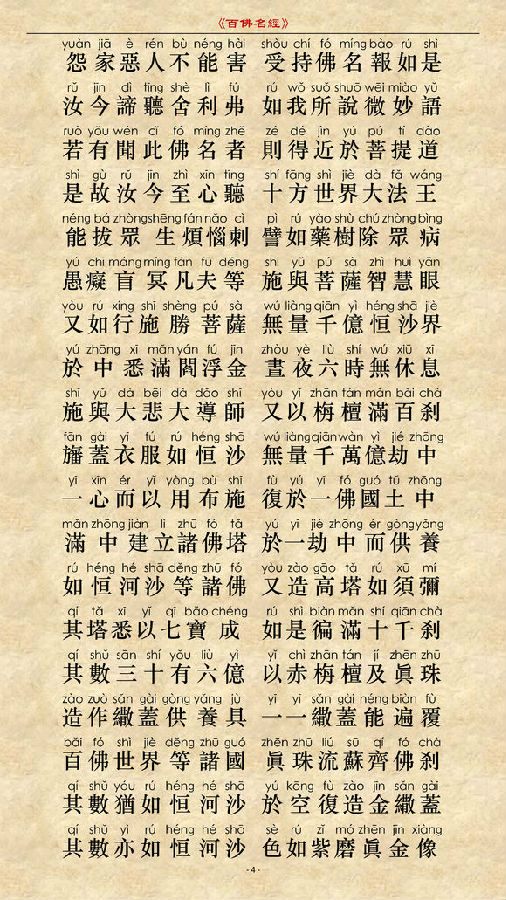 《百佛名經》
yuàn jiā è rén bù néng hài shòu chí fó míng bào rú shì
怨家惡人不能害 受持佛名報如是
rǔ jīn dì tīng shè lì fú rú wǒ suǒ shuō wēi miào yǔ
汝今諦聽舍利弗 如我所說微妙語
ruò yǒu wén cǐ fó míng zhě zé dé jìn yú pú tí dào
若有聞此佛名者 則得近於菩提道
shì gù rǔ jīn zhì xīn tīng shí fāng shì jiè dà fǎ wáng
是故汝今至心聽 十方世界大法王
néng bá zhòng shēng fán nǎo cì pì rú yào shù chú zhòng bìng
能拔眾生煩惱刺 譬如藥樹除眾病
yú chī máng míng fán fū děng shī yǔ pú sà zhì huì yǎn
愚癡盲冥凡夫等 施與菩薩智慧眼
yòu rú xíng shī shèng pú sà wú liàng qiān yì héng shā jiè
又如行施勝菩薩 無量千億恒沙界
yú zhōng xī mǎn yán fú jīn zhòu yè lù shí wú xiū xī
於中悉滿閻浮金 晝夜六時無休息
shī yǔ dà bēi dà dǎo shī yòu yǐ zhān tán mǎn bǎi chà
施與大悲大導師 又以栴檀滿百剎
fān gài yī fú rú héng shā wú liàng qiān wàn yì jié zhōng
旛蓋衣服如恒沙 無量千萬億劫中
yī xīn ér yǐ yòng bù shī fù yú yī fó guó tǔ zhōng
一心而以用布施 復於一佛國土中
mǎn zhōng jiàn lì zhū fó tǎ yú yī jié zhōng ér gòng yǎng
滿中建立諸佛塔 於一劫中而供養
rú héng hé shā děng zhū fó yòu zào gāo tǎ rú xū mí
如恒河沙等諸佛 又造高塔如須彌
qí tǎ xī yǐ qī bǎo chéng rú shì biàn mǎn shí qiān chà
其塔悉以七寶成 如是徧滿十千剎
qí shù sān shí yǒu liù yì yǐ chì zhān tán jí zhēn zhū
其數三十有六億 以赤栴檀及眞珠
zào zuò sǎn gài gòng yǎng jù yī yī sǎn gài néng biàn fù
造作繖蓋供養具 一一繖蓋能遍覆
bǎi fó shì jiè děng zhū guó zhēn zhū liú sū qí fó chà
百佛世界等諸國 眞珠流蘇齊佛剎
qí shù yóu rú héng hé shā yú kōng fù zào jīn sǎn gài
其數猶如恒河沙 於空復造金繖蓋
qí shù yì rú héng hé shā sè rú zǐ mó zhēn jīn xiàng
其數亦如恒河沙 色如紫磨眞金像
-4-